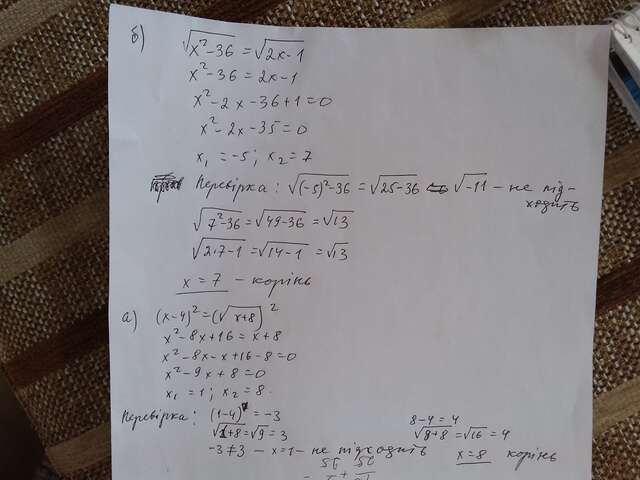 б)
√(x²-36) = √(2x-1)
x²-36 = 2x-1
x²-2x-36+1=0
x²-2x-35=0
x₁ = -5; x₂ = 7
Перевірка: √((-5)²-36) = √(25-36) = √(-11) - не під-
ходить
√(7²-36) = √(49-36) = √13
√(2·7-1) = √(14-1) = √13
x = 7 - корінь
а) (x-4)² = (√(x+8))²
x²-8x+16 = x+8
x²-8x-x+16-8=0
x²-9x+8=0
x₁ = 1; x₂ = 8.
Перевірка: (1-4) = -3 8-4=4
√(1+8) = √9 = 3 √(8+8) = √16 = 4
-3≠3 - x=1 - не підходить x=8 корінь